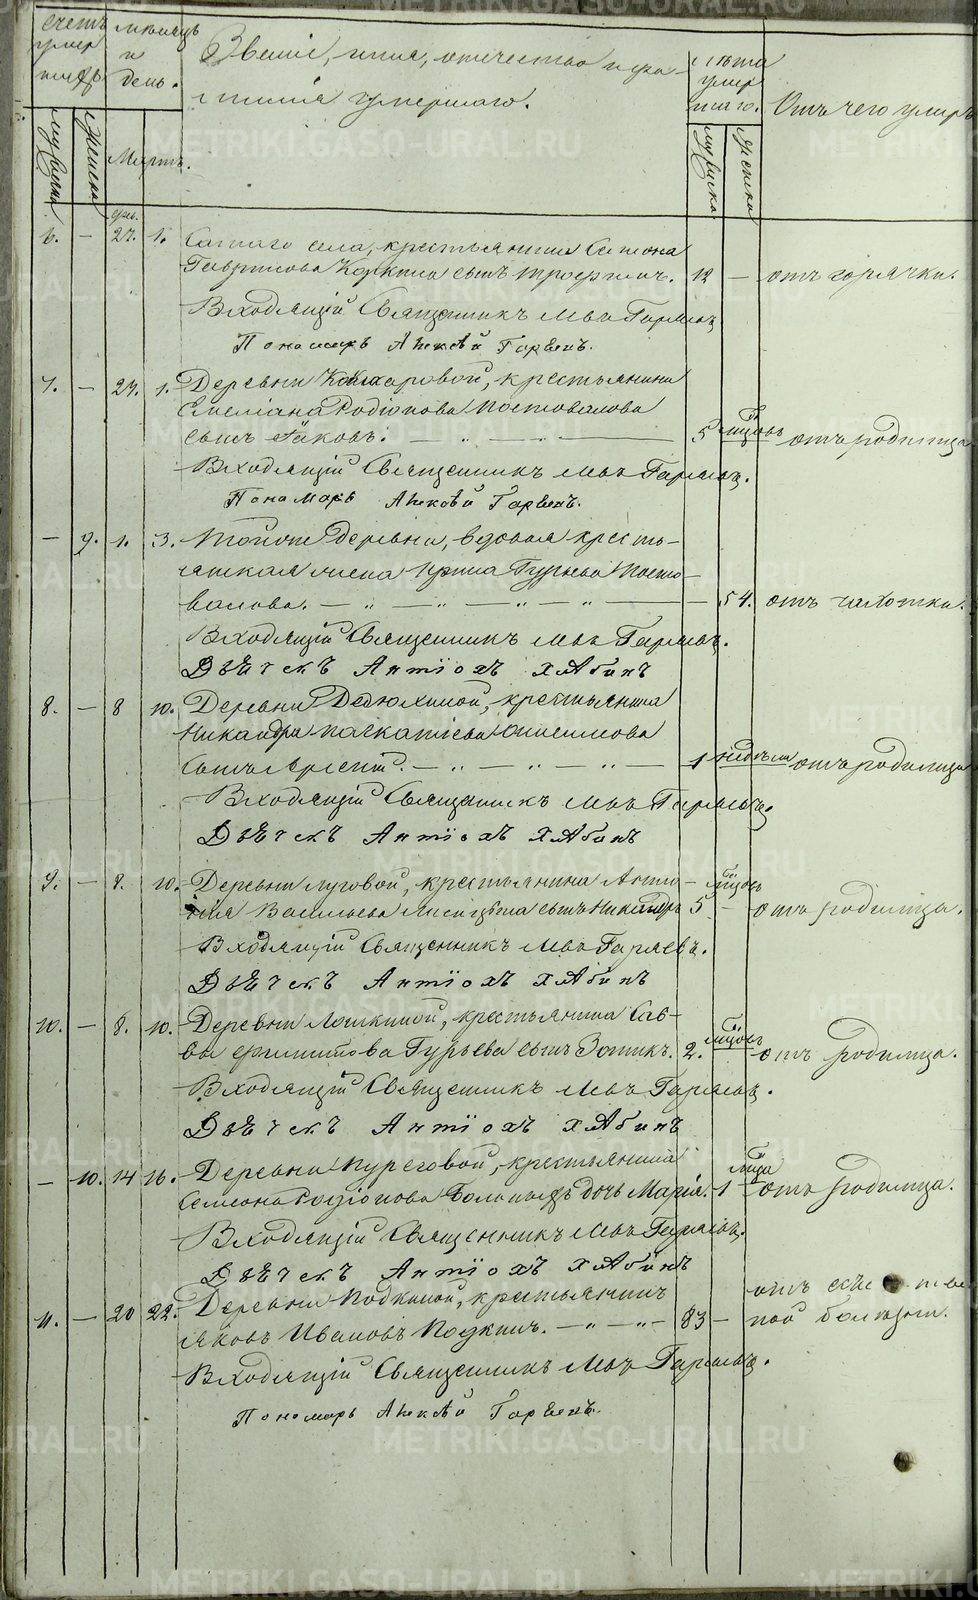 Счетъ умер шихъ.
Мѣсяцъ и день.
Званіе, имя, отчество и фа-
милія умершаго.
Лѣта умер шаго.
Отъ чего умеръ
мужска
женска
Мартъ.
мужска
женска
фев.
6. — 27. 1. Самаго села, крестьянина Симона
Гаврилова сынъ Трофимъ. 12 — отъ горячки.
Входящій Священникъ Левъ Гаряевъ
Пономарь Алексѣй
7. — 27. 1. Деревни Комаровой, крестьянина
Емеліана Родіонова Постовалова
сынъ Іаковъ. — „ — „ — 5 мѣсяцовъ отъ родимца
Входящій Священникъ Левъ Гаряевъ.
Пономарь Алексѣй
— 9. 1. 3. Тойже деревни, вдовая кресть-
янская жена Гурьева Посто-
валова. — „ — „ — „ — „ — — 54. отъ чахотки.
Входящій Священникъ Левъ Гаряевъ.
Дьячекъ Антіохъ Хлябинъ
8. — 8 10. Деревни Дедюхиной, крестьянина
Никандра Анисимова
сынъ Арсеній. — „ — „ — „ — 1 недѣли отъ родимца
Входящій Священникъ Левъ Гаряевъ.
Дьячекъ Антіохъ Хлябинъ
9. — 8. 10. Деревни Луговой, крестьянина Анто-
нія Васильева сынъ Никандръ 5 мѣсяцовъ — отъ родимца.
Входящій Священникъ Левъ Гаряевъ.
Дьячекъ Антіохъ Хлябинъ
10. — 8. 10. Деревни Лошкиной, крестьянина Сав-
вы Филипова Гурьева сынъ Зотикъ. 2. мѣсяцовъ отъ родимца.
Входящій Священникъ Левъ Гаряевъ.
Дьячекъ Антіохъ Хлябинъ
— 10. 14 16. Деревни Пуреговой, крестьянина
Симеона Родіонова дочь Марія. — 1 мѣсяца отъ родимца.
Входящій Священникъ Левъ Гаряевъ.
Дьячекъ Антіохъ Хлябинъ
11. — 20 22. Деревни Подкиной, крестьянинъ
Іаковъ Ивановъ Подкинъ. — „ — „ — 83 — отъ
ной болѣзни.
Входящій Священникъ Левъ Гаряевъ.
Пономарь Алексѣй
METRIKI.GASO-URAL.RU